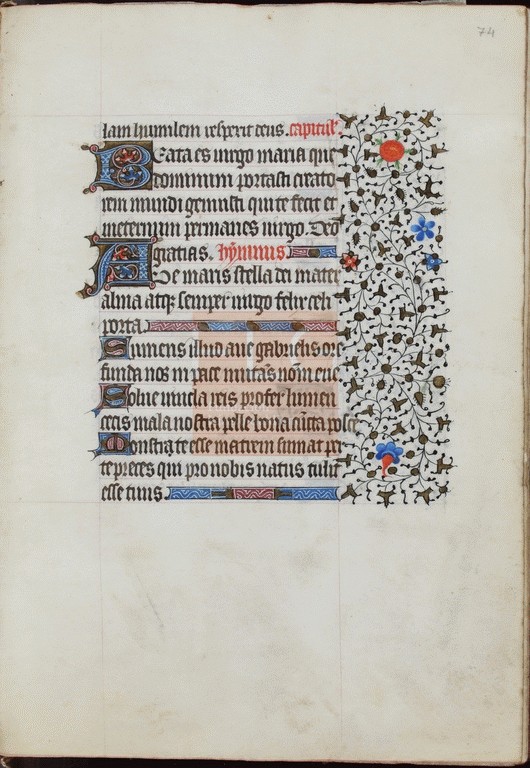 74
lam humilem respexit deus. capitulū.
Beata es uirgo maria que
dominum portasti creato
rem mundi genuisti qui te fecit et
ineternum permanes uirgo. Deo
gratias. hymnus
Aue maris stella dei mater
alma atq; semper uirgo felix celi
porta.
Sumens illud aue gabrielis ore
funda nos in pace mutās nom̄ eue
Solue uincla reis profer lumen
cecis mala nostra pelle bona cūcta posce
Monstra te esse matrem sumat per
te preces qui pro nobis natus tulit
esse tuus.